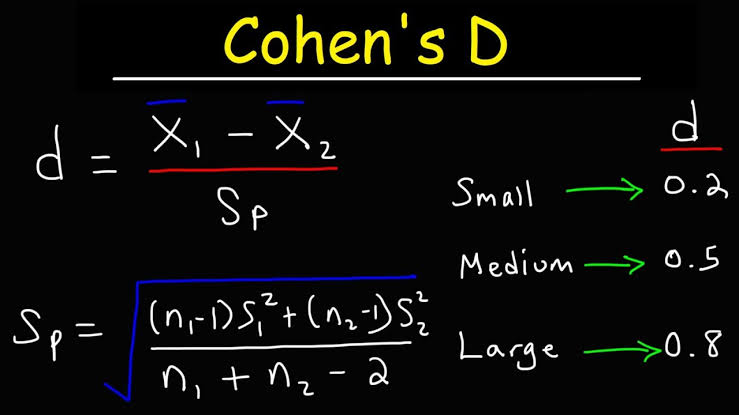 Cohen's D
d = (X̄₁ − X̄₂) / Sₚ
Sₚ = √(((n₁-1)S₁² + (n₂-1)S₂²) / (n₁ + n₂ − 2))
d
Small → 0.2
Medium → 0.5
Large → 0.8